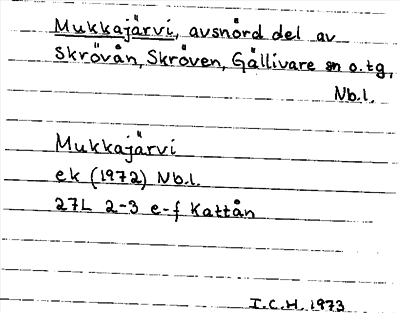 Mukkajärvi, avsnörd del av
Skrövån, Skröven, Gällivare sn o. tg,
Nb.l.
Mukkajärvi
ek (1972) Nb.l.
27L 2-3 e-f Kattån
I.C.H. 1973